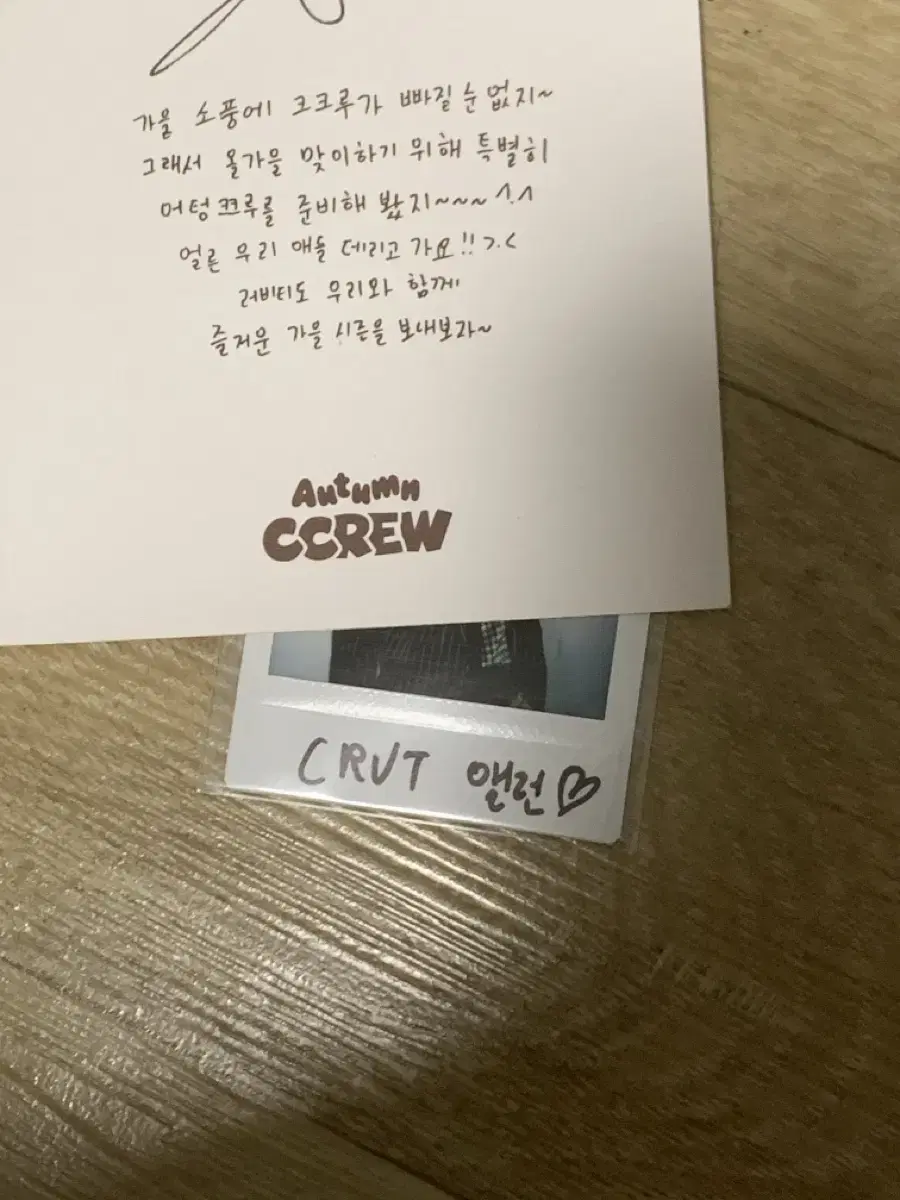 가을 소풍에 크크루가 빠질 순 없지~
그래서 올가을 맞이하기 위해 특별히
어텅크루를 준비해 봤지~~~^.^
얼른 우리 애들 데리고 가요!! >.<
러비티도 우리와 함께
즐거운 가을 시즌을 보내보라~
Autumn
CCREW
CRVT 앨런♡